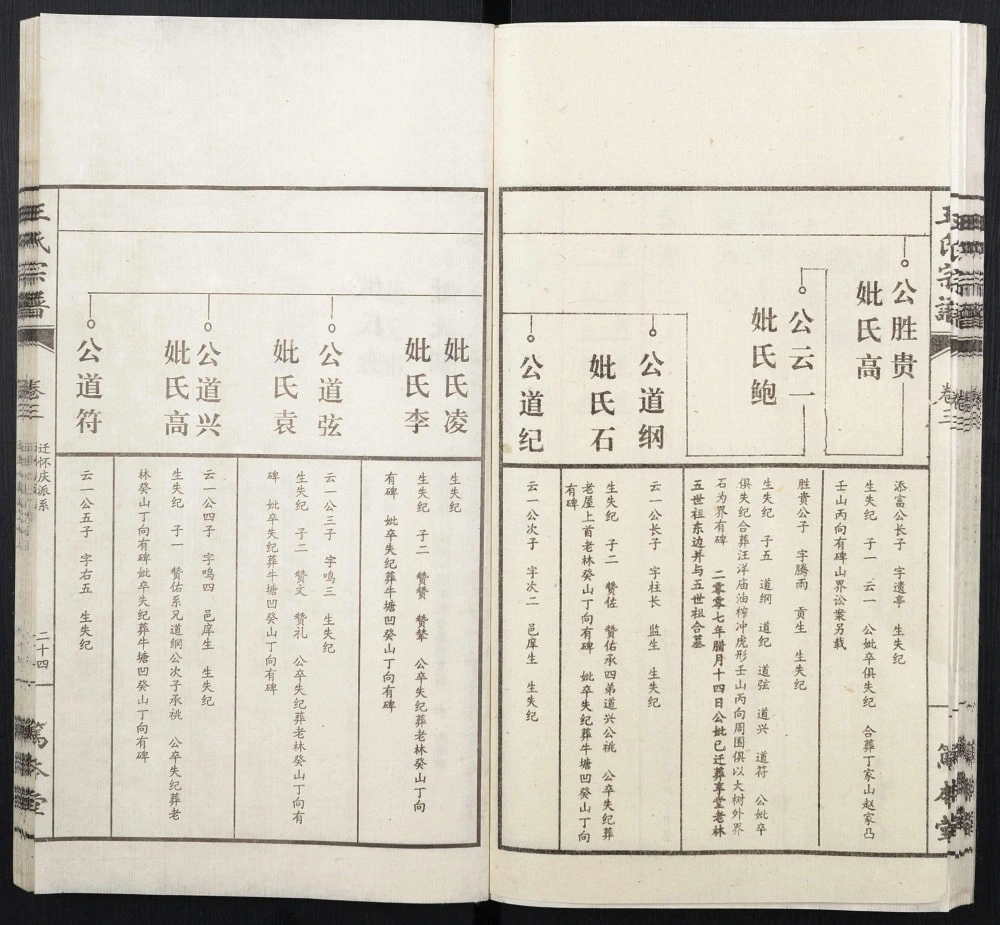 王氏宗谱
卷三
公胜贵
妣氏高
公云一
妣氏鲍
公道纲
妣氏石
公道纪
添富公长子 字遗亭 生失纪
生失纪 子一 云一 公妣卒俱失纪 合葬丁家山赵家凸
壬山丙向有碑山界讼案另载
胜贵公子 字腾雨 贡生 生失纪
生失纪 子五 道纲 道纪 道弦 道兴 道符 公妣卒
俱失纪合葬汪洋庙油榨冲虎形壬山丙向周围俱以大树外界
石为界有碑 二零零七年腊月十四日公妣已迁葬享堂老林
五世祖东边并与五世祖合墓
云一公长子 字柱长 监生 生失纪
生失纪 子二 赞佐 赞佑承四弟道兴公祧 公卒失纪葬
老屋上首老林癸山丁向有碑 妣卒失纪葬牛塘凹癸山丁向
有碑
云一公次子 字次二 邑庠生 生失纪
妣氏凌
妣氏李
公道弦
妣氏袁
公道兴
妣氏高
公道符
生失纪
生失纪 子二 赞赞 赞 公卒失纪葬老林癸山丁向
有碑 妣卒失纪葬牛塘凹癸山丁向有碑
云一公三子 字鸣三 生失纪
生失纪 子二 赞文 赞礼 公卒失纪葬老林癸山丁向有
碑 妣卒失纪葬牛塘凹癸山丁向有碑
云一公四子 字鸣四 邑庠生 生失纪
生失纪 子一 赞佑系兄道纲公次子承祧 公卒失纪葬老
林癸山丁向有碑妣卒失纪葬牛塘凹癸山丁向有碑
云一公五子 字右五 生失纪
王氏宗谱
卷三
迁怀庆派系
二十四
笃本堂